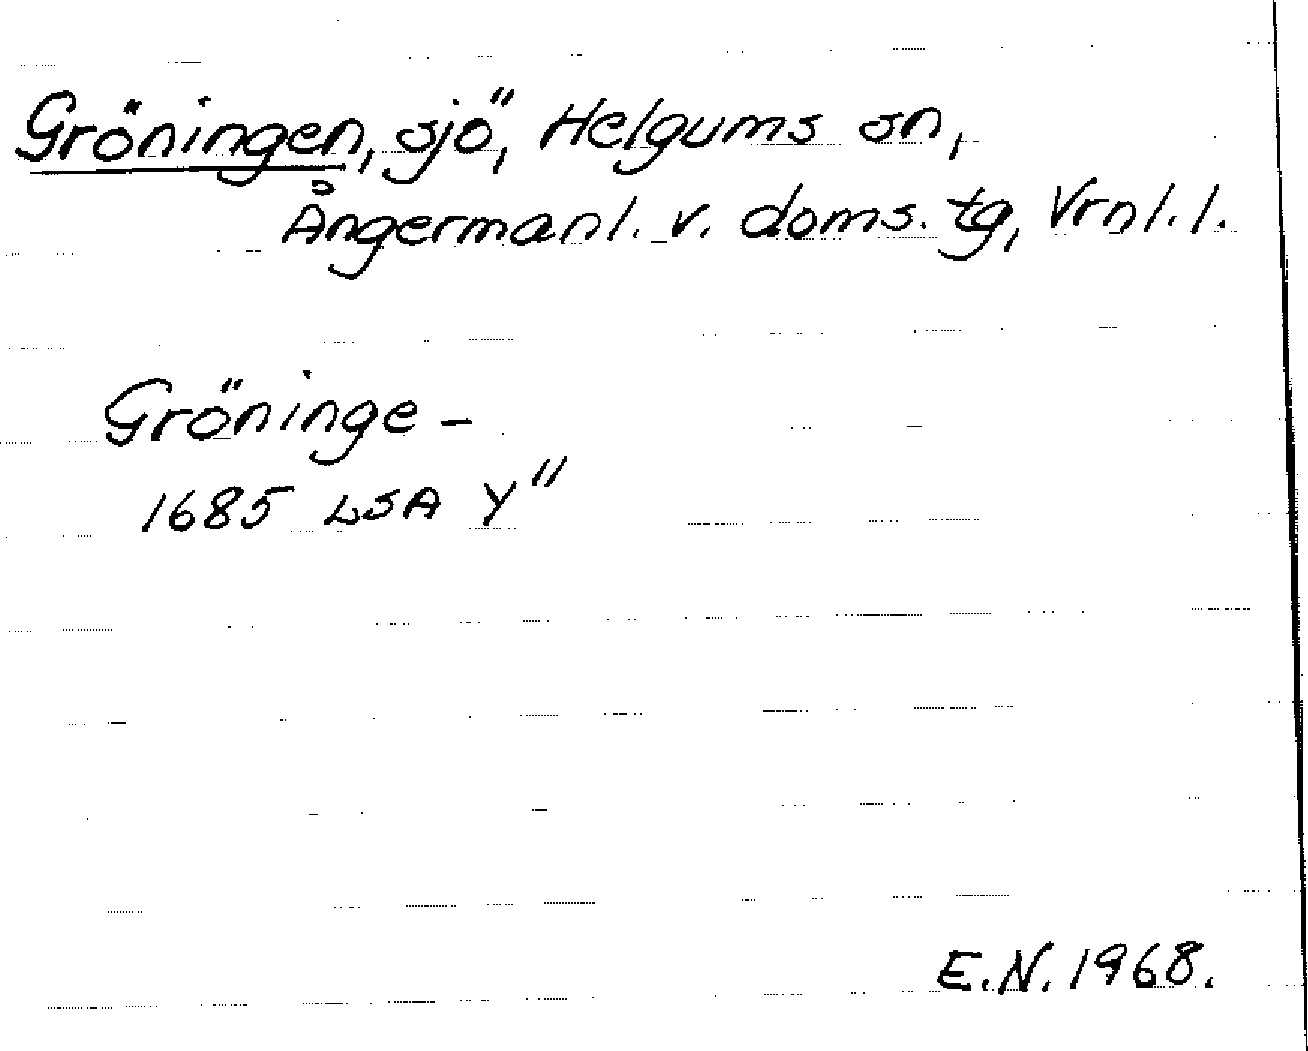 Gröningen, sjö, Helgums sn,
Ångermanl. v. doms. tg, Vrnl. l.
Gröninge -
1685 LSA Y"
E.N. 1968.